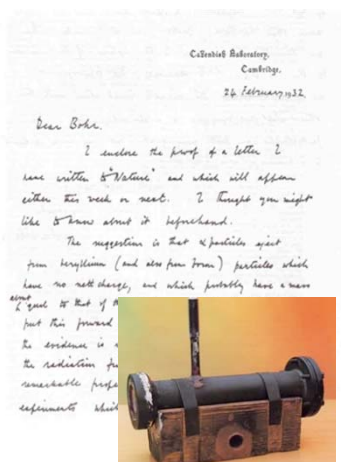 Cavendish Laboratory,
Cambridge.
24 February 1932.
Dear Bohr.
I enclose the proof of a letter I
have written to "Nature" and which will appear
either this week or next. I thought you might
like to know about it beforehand.
The suggestion is that α particles eject
from beryllium (and also from boron) particles which
have no nett charge, and which probably have a mass
about equal to that of the
put this forward
the evidence is
the radiation
remarkable
experiments which